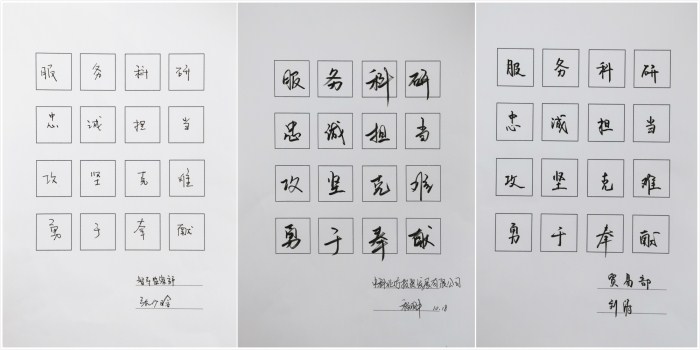 服务科研
忠诚担当
攻坚克难
勇于奉献
服务科研
忠诚担当
攻坚克难
勇于奉献
服务科研
忠诚担当
攻坚克难
勇于奉献
贸易部